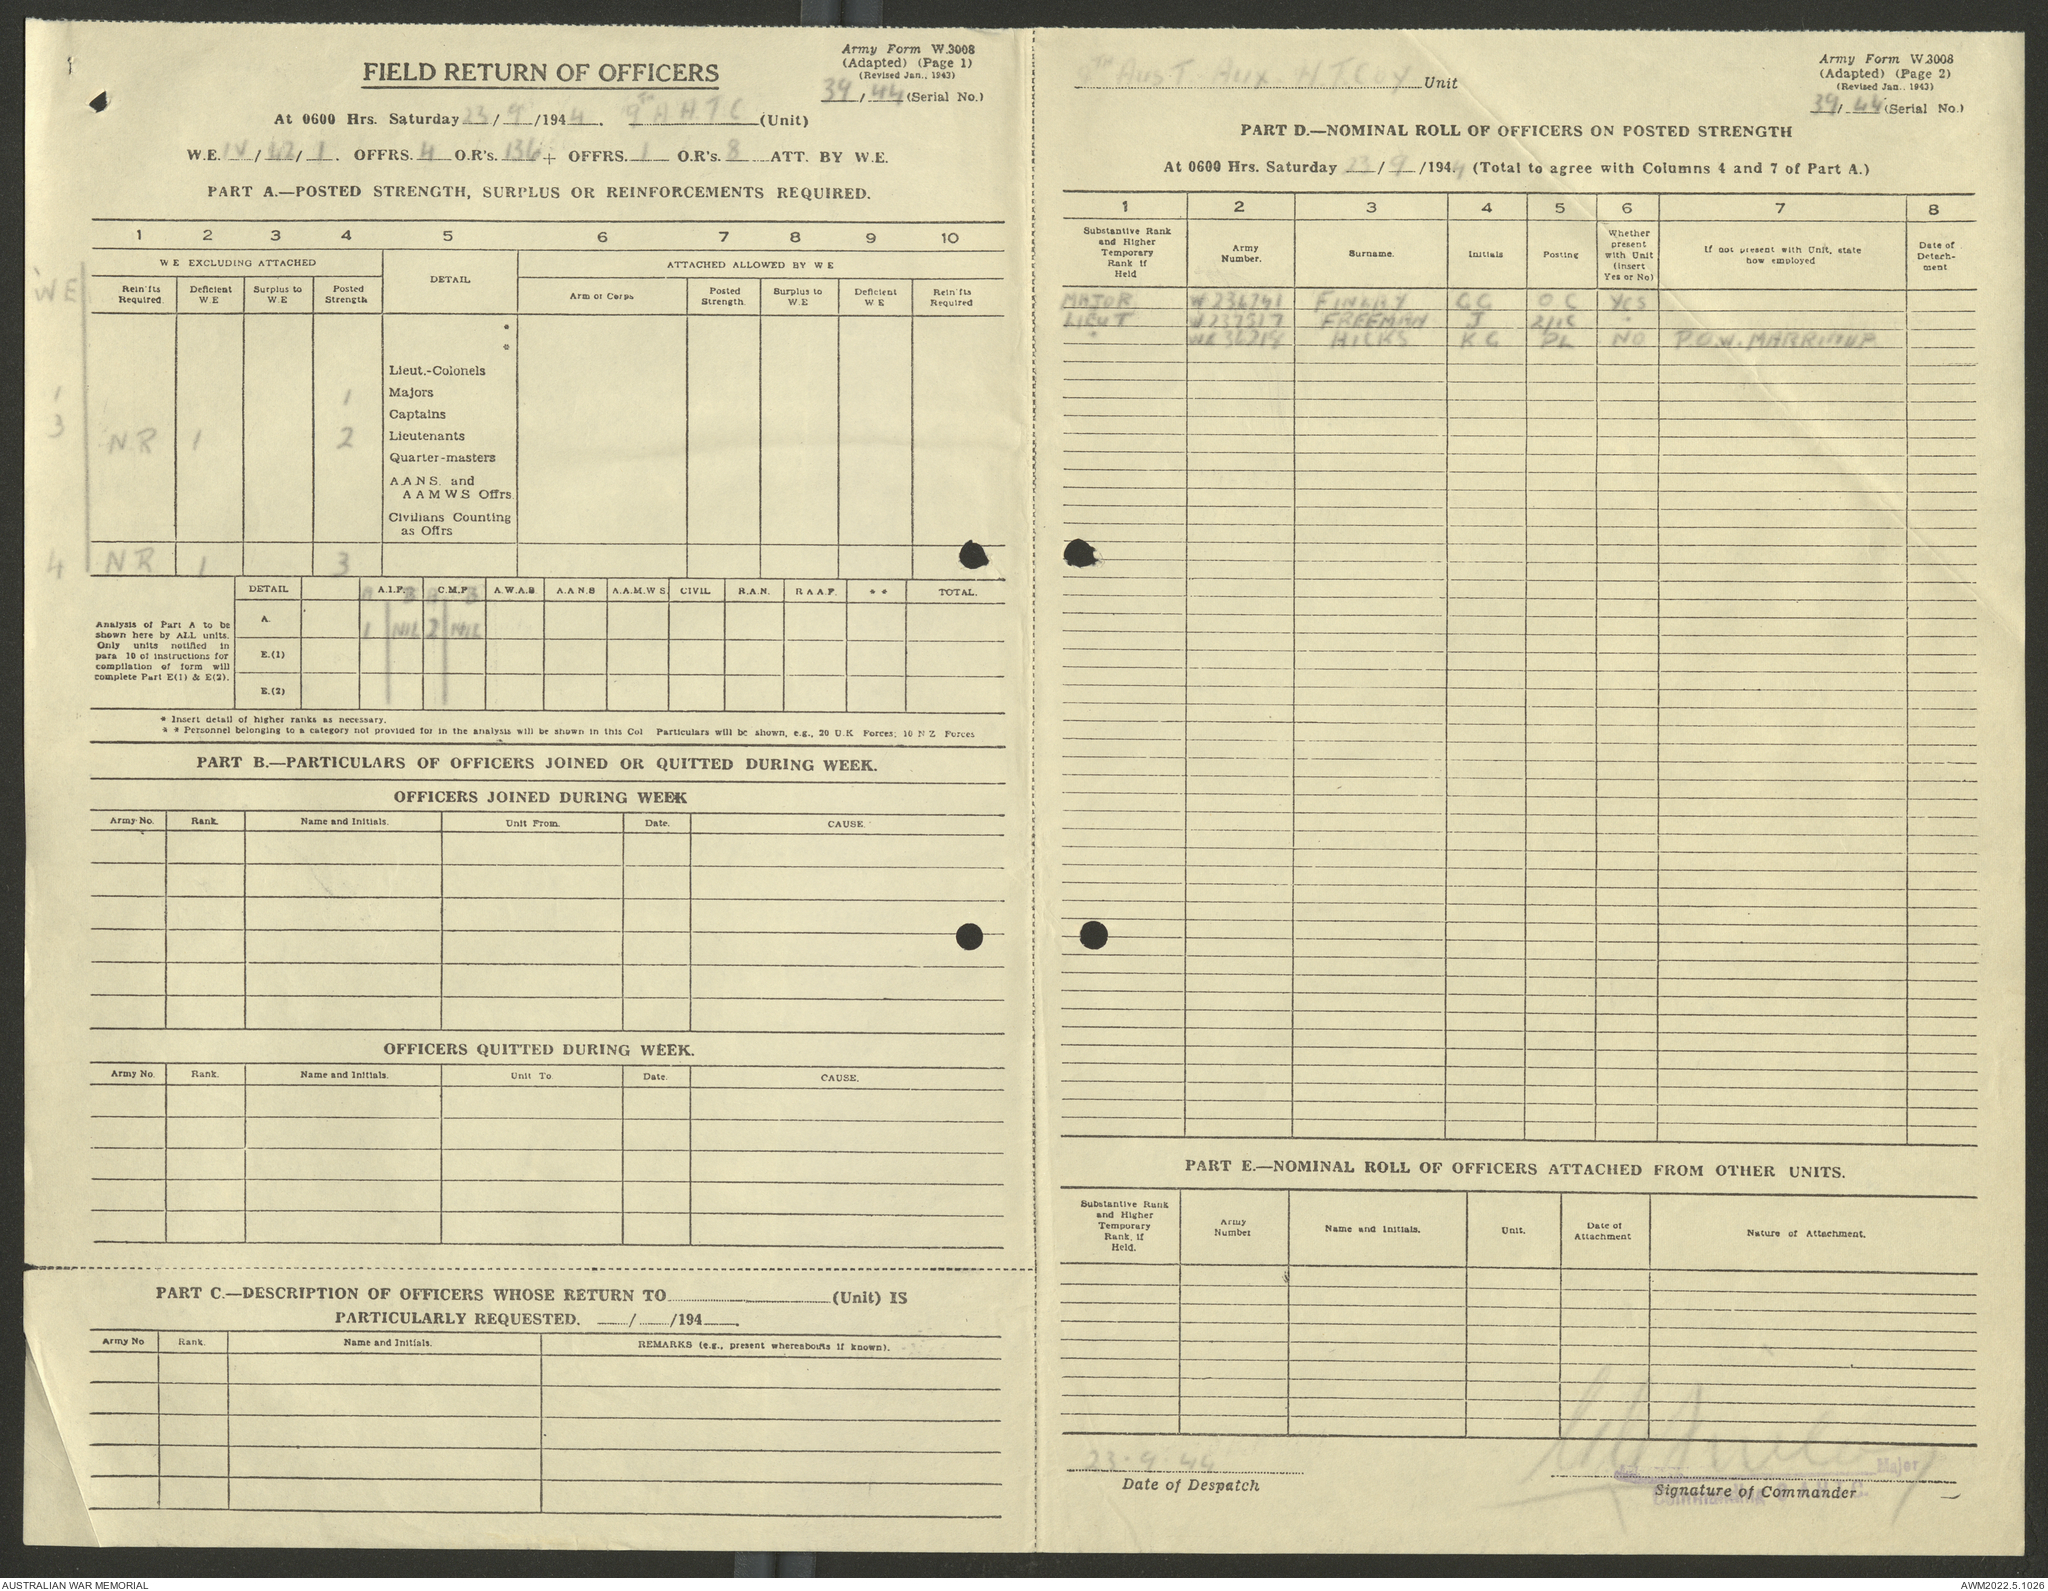 Army Form W.3008
(Adapted) (Page 1)
(Revised Jan., 1943)
39/44 (Serial No.)
FIELD RETURN OF OFFICERS
At 0600 Hrs. Saturday 23/9/1944. 9TH A.H.T.C (Unit)
W.E. IV/42/1. OFFRS. 4 O.R's. 136 + OFFRS. 1 O.R's. 8 ATT. BY W.E.
PART A.—POSTED STRENGTH, SURPLUS OR REINFORCEMENTS REQUIRED.
1 2 3 4 5 6 7 8 9 10
W E EXCLUDING ATTACHED DETAIL ATTACHED ALLOWED BY W E
WE
Rein'fts Required. Deficient W.E Surplus to W.E Posted Strength Arm or Corps Posted Strength. Surplus to W.E Deficient W.E Rein'fts Required
*
*
Lieut.-Colonels
1 1 Majors
3 Captains
N.R 1 2 Lieutenants
Quarter-masters
A.A.N.S. and
A A M W S Offrs.
Civilians Counting
as Offrs
4 NR 1 3
DETAIL A.I.F. C.M.F. A.W.A.S A.A.N.S A.A.M.W S. CIVIL R.A.N. R A A.F. * * TOTAL.
A B A B
Analysis of Part A to be
shown here by ALL units.
Only units notified in
para 10 of instructions for
compilation of form will
complete Part E(1) & E(2).
A. 1 NIL 2 NIL
E.(1)
E.(2)
* Insert detail of higher ranks as necessary.
* * Personnel belonging to a category not provided for in the analysis will be shown in this Col Particulars will be shown, e.g., 20 U.K Forces; 10 N Z Forces
PART B.—PARTICULARS OF OFFICERS JOINED OR QUITTED DURING WEEK.
OFFICERS JOINED DURING WEEK
Army No. Rank. Name and Initials. Unit From. Date. CAUSE.
OFFICERS QUITTED DURING WEEK.
Army No. Rank. Name and Initials. Unit To Date. CAUSE.
PART C.—DESCRIPTION OF OFFICERS WHOSE RETURN TO (Unit) IS
PARTICULARLY REQUESTED. / /194 .
Army No Rank. Name and Initials. REMARKS (e.g., present whereabouts if known).
9TH AUST. AUX H.T. COY Unit
Army Form W.3008
(Adapted) (Page 2)
(Revised Jan., 1943)
39/44 (Serial No.)
PART D.—NOMINAL ROLL OF OFFICERS ON POSTED STRENGTH
At 0600 Hrs. Saturday 23/9/1944 (Total to agree with Columns 4 and 7 of Part A.)
1 2 3 4 5 6 7 8
Substantive Rank and Higher Temporary Rank if Held
Army Number.
Surname.
Initials
Posting
Whether present with Unit (insert Yes or No)
If not present with Unit, state how employed
Date of Detach-ment
MAJOR W236741 FINLAY GG O C YES
LIEUT W237517 FREEMAN J 2/IC "
" HICKS K G PL NO P.O.W. MARRINUP
PART E.—NOMINAL ROLL OF OFFICERS ATTACHED FROM OTHER UNITS.
Substantive Rank and Higher Temporary Rank, if Held.
Army Number
Name and Initials.
Unit.
Date of Attachment
Nature of Attachment.
23.9.44
Date of Despatch
Major
Signature of Commander
AUSTRALIAN WAR MEMORIAL
AWM2022.5.1026